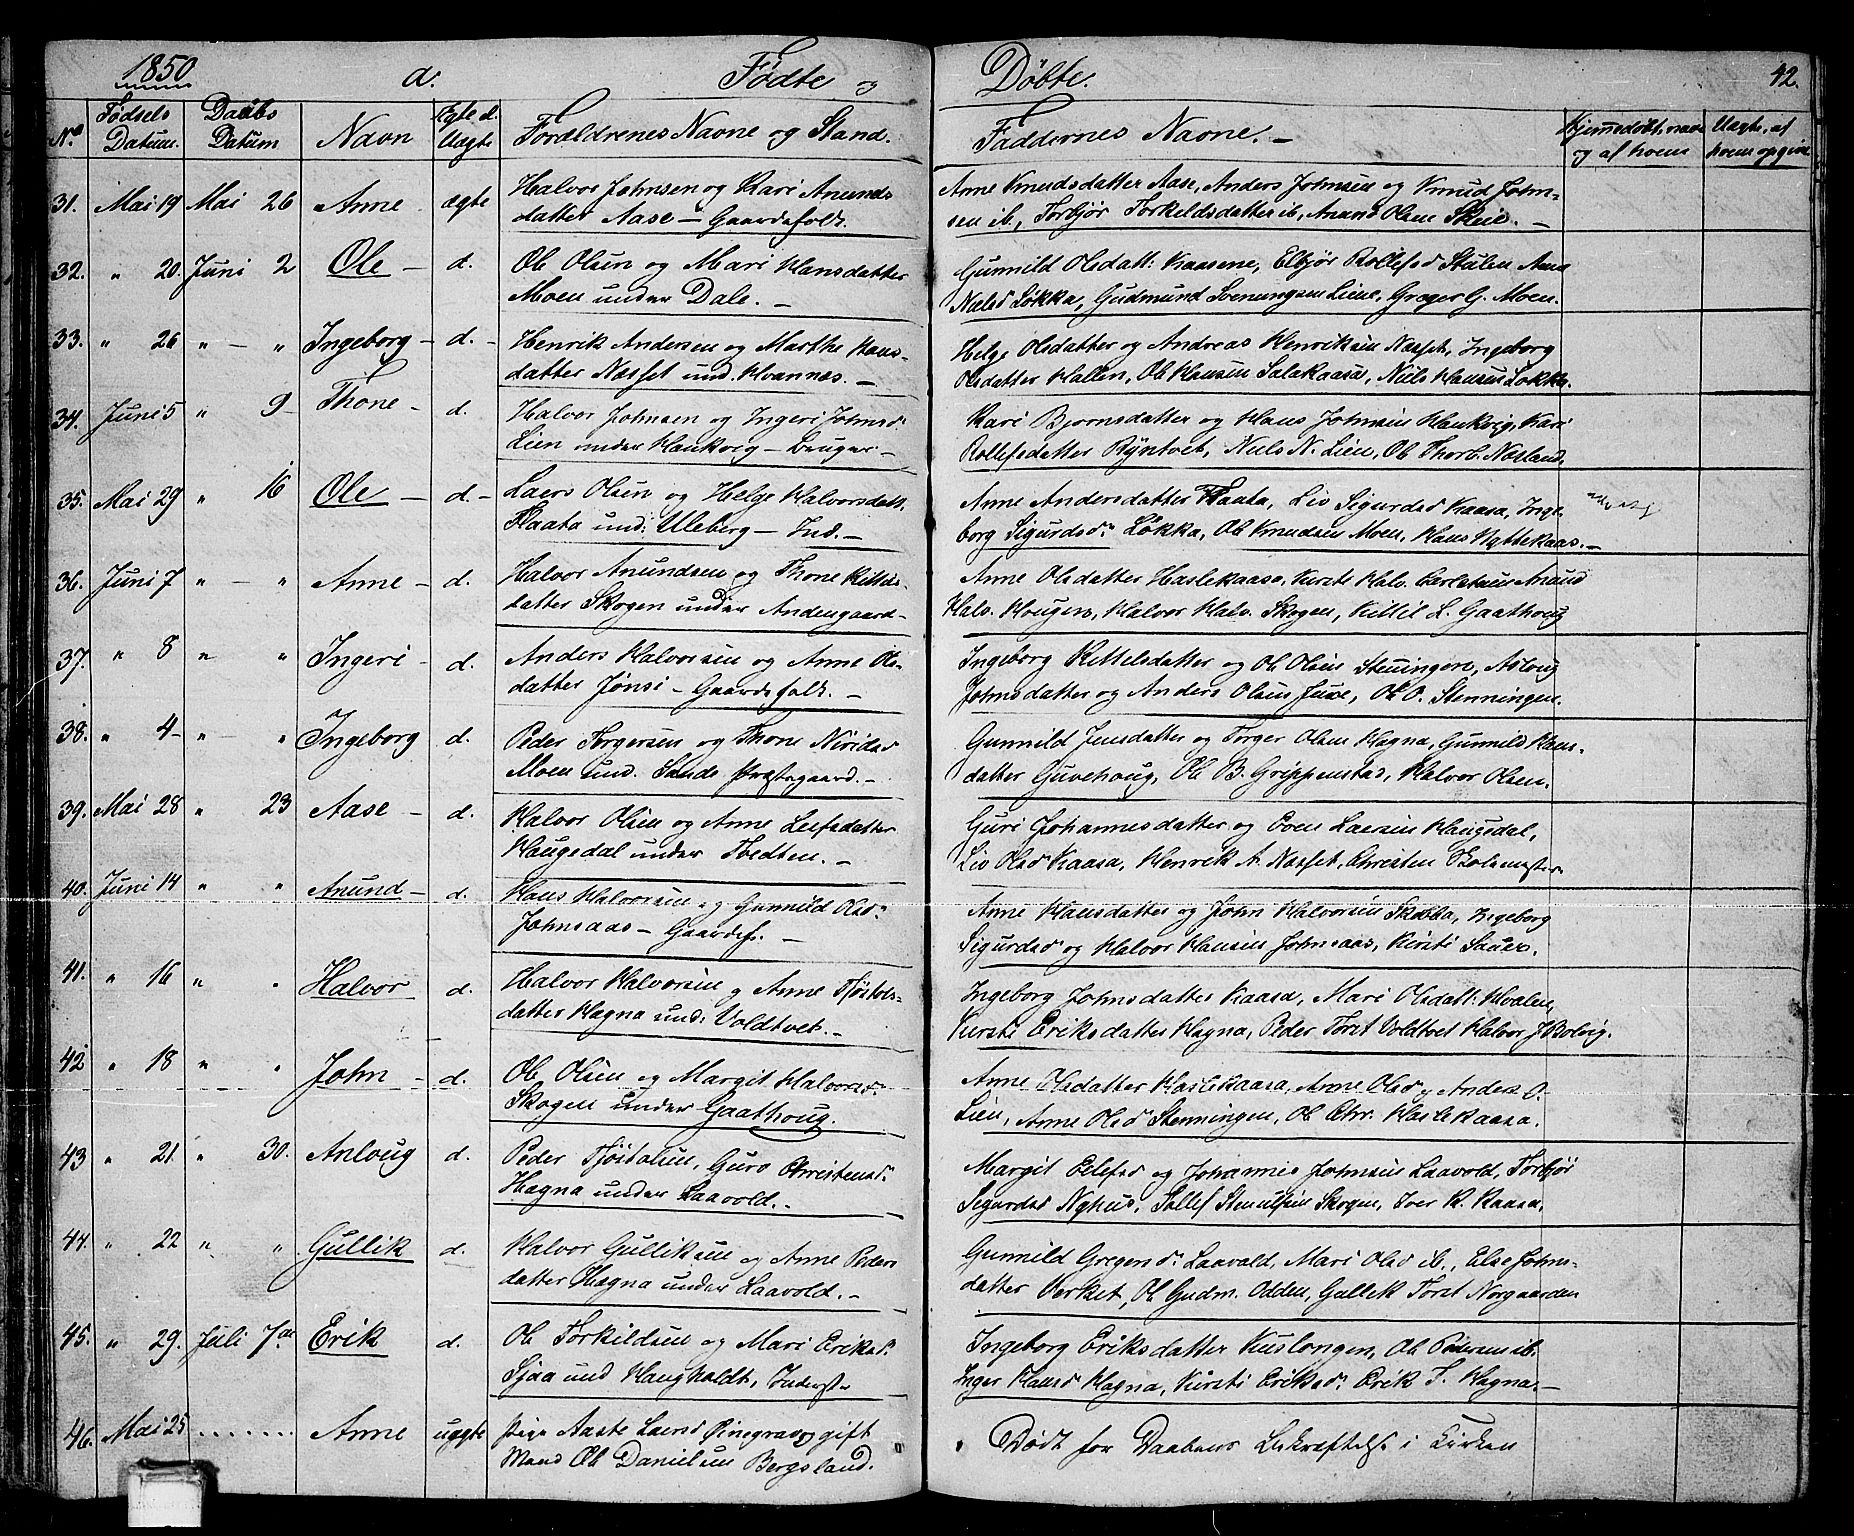 1850 d. Fødte og Døbte. 42.
No Fødsels Datum. Daabs Datum Navn Ægte d. Uægte Forældrenes Navne og Stand. Faddernes Navne. Hjemmedøbt, naar og af hvem Uægte, af hvem opgivet
31. Mai 19 Mai 26 Anne ægte Halvor Johnsen og Kari Anunds
datter Aase – Gaardsfolk.
Anne Knudsdatter Aase, Anders Johnsen og Knud John-
sen ib., Torbjør Torkeldsdatter ib, Anund Olsen Skeie.
32. " 20. Juni 2 Ole d. Ole Olsen og Mari Hansdatter
Moen under Dale.
Gunnild Olsdatt: Kaasene, Elbjør Rollefsd Stulen Anne
Nielsd Løkka, Gudmund Svenungsen Liene, Greger G. Moen.
33. " 26 " " Ingeborg d. Henrik Andersen og Marthe Hans-
datter Næsset und. Hvannæs.
Helge Olsdatter og Andreas Henriksen Næsset, Ingeborg
Olsdatter Hallen, Ole Hansen Salakaasa, Niels Hansen Løkka.
34. Juni 5 " 9 Thone d. Halvor Johnsen og Ingeri Johnsd.
Lien under Haukvig – Bruger
Kari Bjørnsdatter og Hans Johnsen Haukvig, Kari
Rollefsdatter Ryntvet, Niels N. Lien, Ole Thorb. Næsland.
35. Mai 29 " 16 Ole d. Laers Olsen og Helge Halvorsdatt.
Flaata und. Uleberg – Ind.
Anne Andersdatter Flaata, Liv Sigurdsd Kaasa, Inge-
borg Sigurdsdr Løkka, Ole Knudsen Moen, Hans Hyttekaas.
36. Juni 7 " " Anne d. Halvor Anundsen og Thone Kittils
datter Skogen under Andersgaard
Anne Olsdatter Haslekaasa, Kirsti Halv. Anund
Halv. Haugen, Halvor Halv. Skogen, Kittil L. Gaathoug
37. " 8 " " Ingeri d. Anders Halvorsen og Anne Ols-
datter Jønsi – Gaardsfolk.
Ingeborg Kittelsdatter og Ole Olsen Steningen, Asloug
Johnsdatter og Anders Olsen Juve, Ole O. Stenningen.
38. " 4 " " Ingeborg d. Peder Torgersen og Thone Niridsd
Moen und. Sands Præstegaard.
Gunnild Jensdatter og Torger Olsen Hagna, Gunnild Hans-
datter Guvehoug, Ole B. Grippenstad, Halvor Olsen.
39. Mai 28 " 23 Aase d. Halvor Olsen og Anne Leifsdatter
Haugedal under Tvedten.
Guri Johannesdatter og Even Laersen Haugedal,
Liv Olsd Kaasa, Henrik A. Næsset, Christen Skolemester
40. Juni 14 " " Anund d. Hans Halvorsen og Gunnild Olsdr
Johnsaas – Gaardsf.
Anne Hansdatter og John Halvorsen Skobba, Ingeborg
Sigurdsd og Halvor Hansen Johnsaas, Kirsti
41. " 16 " " Halvor d. Halvor Halvorsen og Anne Tjøstols-
datter Hagna und. Voldtvet.
Ingeborg Johnsdatter Kaasa, Mari Olsdatt: Hvalen,
Kirsti Eriksdatter Hagna, Peder Torst Voldtvet Halvor J. Bolvig.
42 " 18 " " John d. Ole Olsen og Margit Halvorsdr
Skogen under Gaathoug.
Anne Olsdatter Haslekaasa, Anne Olsd og Anders O.
Lien, Anne Olsdr Stenningen, Ole Chr. Haslekaasa.
43 " 21. " 30. Anloug d. Peder Tjøstolsen, Guro Christensdr
Hagna under Laavold.
Margit Ellefsd og Johannes Johnsen Laavold, Torbjør
Sigurdsd Nyhus, Tellef Stenulfsen Skogen, Iver K. Kaasa.
44. " 22 " " Gullik d. Halvor Gulliksen og Anne Peders
datter Hagna under Laavold.
Gunnild Gregersdr Laavold, Mari Olsd ib., Else Johns-
datter Verket, Ole Gudm. Odden, Gullik Torst Norgaarden
45. " 29. Juli 7de Erik d. Ole Torkildsen og Mari Eriksdr
Sjaa und Haugholdt, Inderst
Ingeborg Eriksdatter Kuslongen, Ole Pedersen ib.
Inger Hansd Hagna, Kirsti Eriksdr Erik T. Hagna.
46. Mai 25 ....... Anne uægte Pige Aaste Laersd Ringerud og gift
Mand Ole Danielsen Bergsland.
Dødt før Daabens Bekræftelse i Kirken